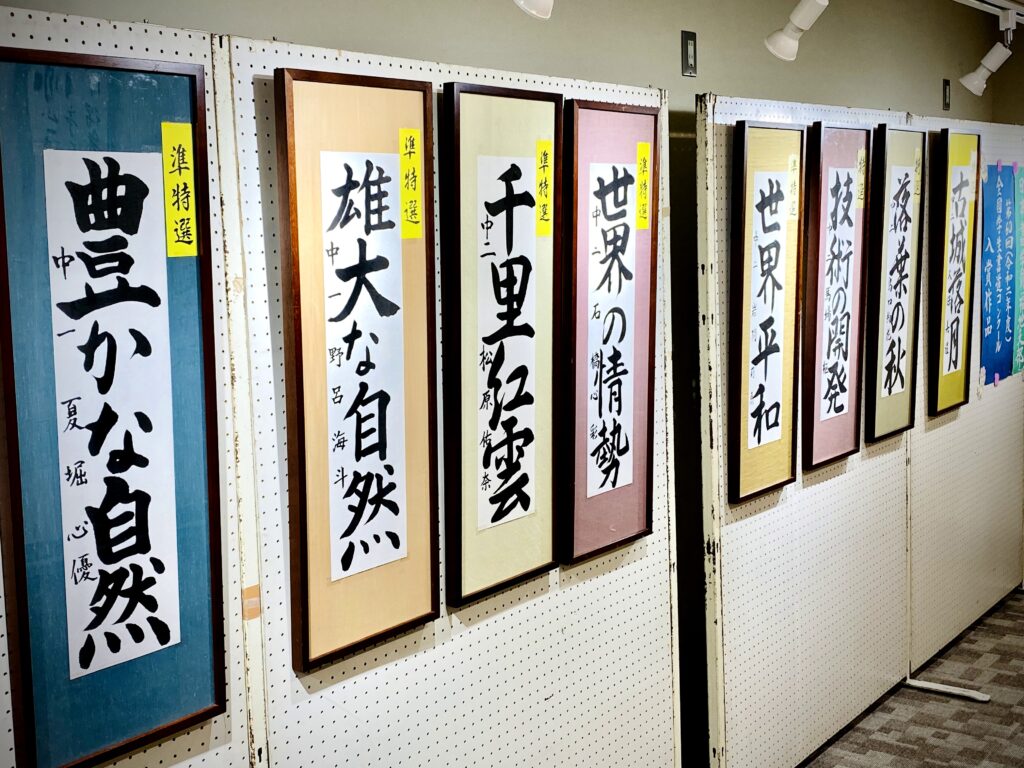 準特選
豊かな自然
中一 夏堀心優
準特選
雄大な自然
中一 野呂海斗
準特選
千里紅雲
中二 松原佑奈
準特選
世界の情勢
中二 石 心彩
準特選
世界平和
技術の開発
落葉の秋
古城落月
回(令和二年度)
全国学生書道コンクール
入賞作品